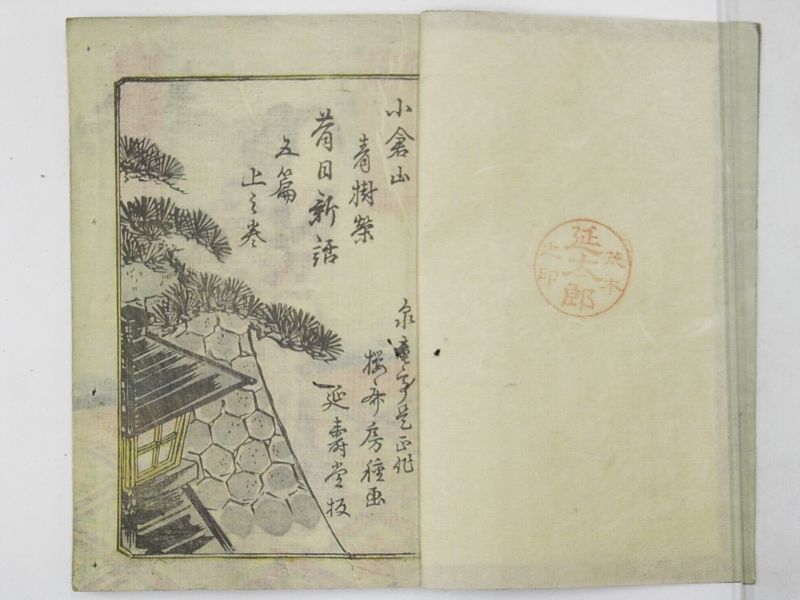 茂木
延太郎
之印
小倉山
青樹榮
昔日新話
五篇
上之巻
亭是正作
桜斎房種画
延壽堂板